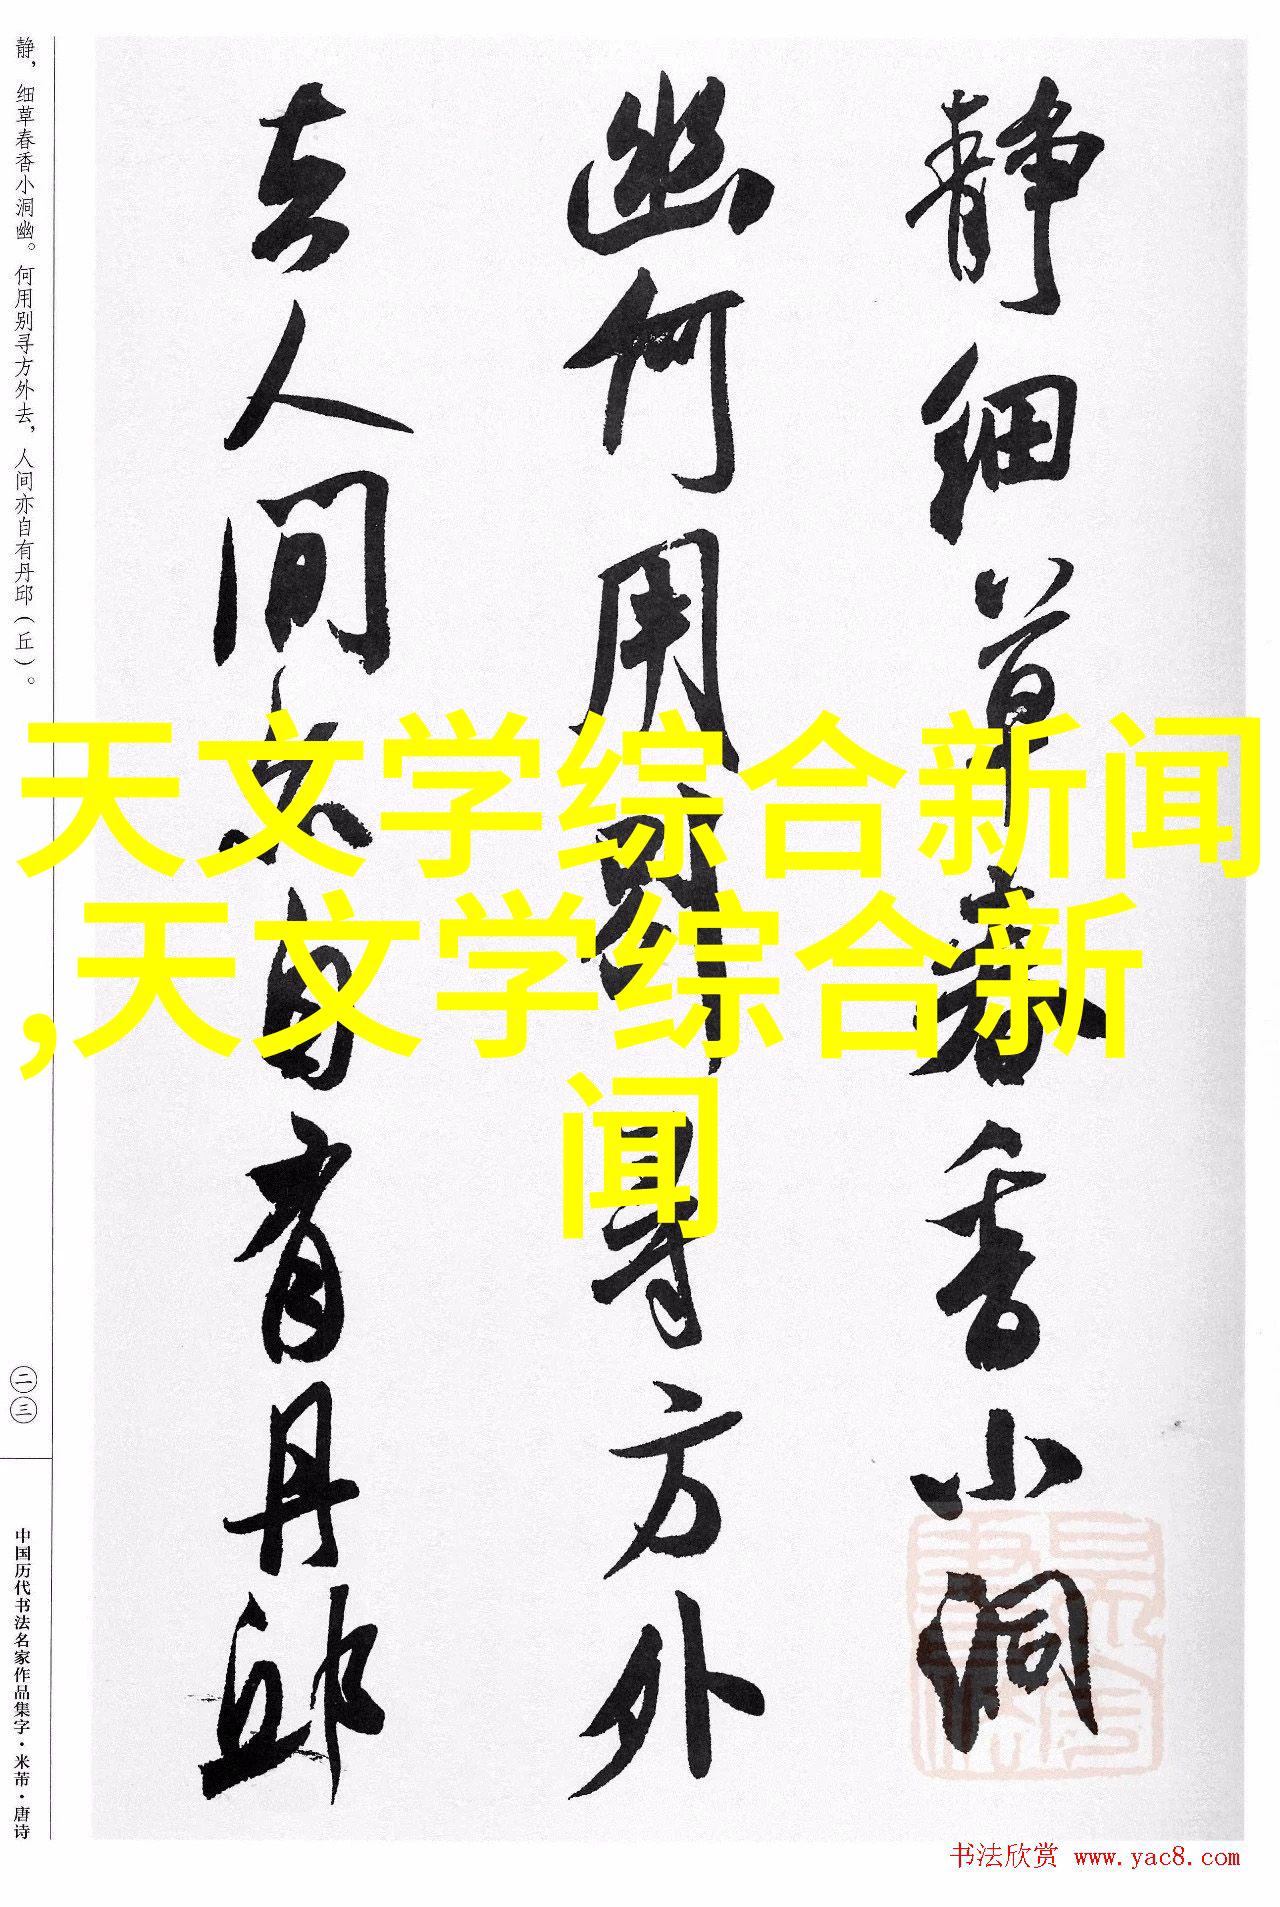 静细草春香小洞
幽何用别寻方外
去人间亦自有丹邱
静，细草春香小洞幽。何用别寻方外去，人间亦自有丹邱（丘）。
二三
中国历代书法名家作品集字·米芾·唐诗
天文学综合新闻
,天文学综合新
闻
书法欣赏 www.yac8.com